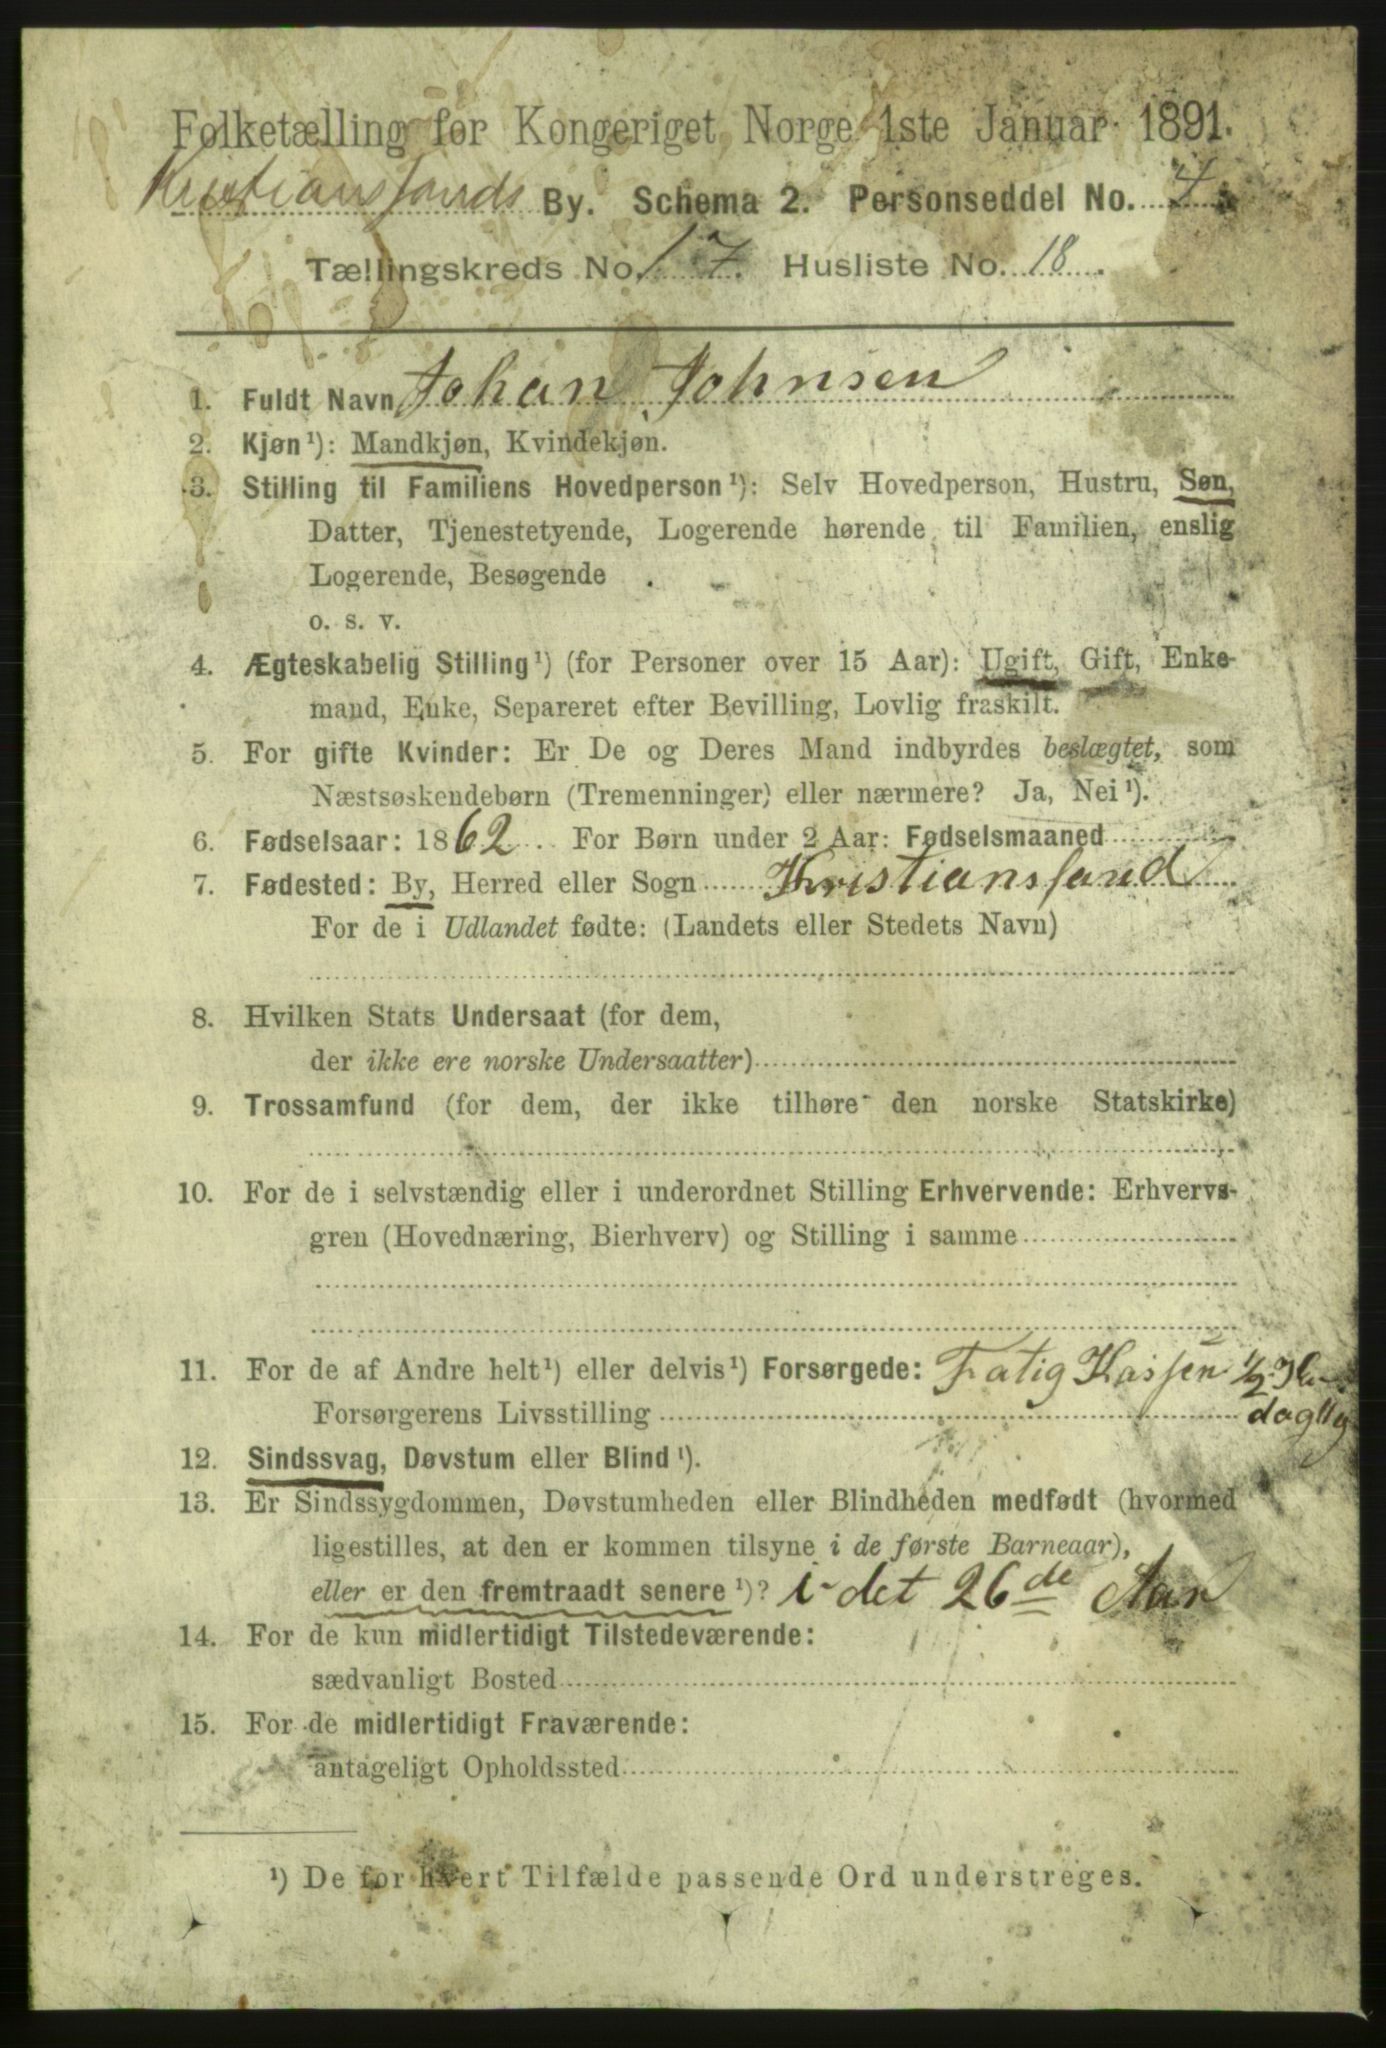 Folketælling for Kongeriget Norge 1ste Januar 1891.
Kristianssands By. Schema 2. Personseddel No. 4
Tællingskreds No. 17. Husliste No. 18.
1. Fuldt Navn Johan Johnsen
2. Kjøn¹): Mandkjøn, Kvindekjøn.
3. Stilling til Familiens Hovedperson¹): Selv Hovedperson, Hustru, Søn,
Datter, Tjenestetyende, Logerende hørende til Familien, enslig
Logerende, Besøgende
o. s. v.
4. Ægteskabelig Stilling¹) (for Personer over 15 Aar): Ugift, Gift, Enke-
mand, Enke, Separeret efter Bevilling, Lovlig fraskilt.
5. For gifte Kvinder: Er De og Deres Mand indbyrdes beslægtet, som
Næstsøskendebørn (Tremenninger) eller nærmere? Ja, Nei¹).
6. Fødselsaar: 1862. For Børn under 2 Aar: Fødselsmaaned
7. Fødested: By, Herred eller Sogn Kristianssand
For de i Udlandet fødte: (Landets eller Stedets Navn)
8. Hvilken Stats Undersaat (for dem,
der ikke ere norske Undersaatter)
9. Trossamfund (for dem, der ikke tilhøre den norske Statskirke)
10. For de i selvstændig eller i underordnet Stilling Erhvervende: Erhvervs-
gren (Hovednæring, Bierhverv) og Stilling i samme
11. For de af Andre helt¹) eller delvis¹) Forsørgede: Fatig Kassen 1/2 Kr
Forsørgerens Livsstilling daglig
12. Sindssvag, Døvstum eller Blind¹).
13. Er Sindssygdommen, Døvstumheden eller Blindheden medfødt (hvormed
ligestilles, at den er kommen tilsyne i de første Barneaar),
eller er den fremtraadt senere¹)? i det 26de Aar
14. For de kun midlertidigt Tilstedeværende:
sædvanligt Bosted
15. For de midlertidigt Fraværende:
antageligt Opholdssted
¹) De for hvert Tilfælde passende Ord understreges.